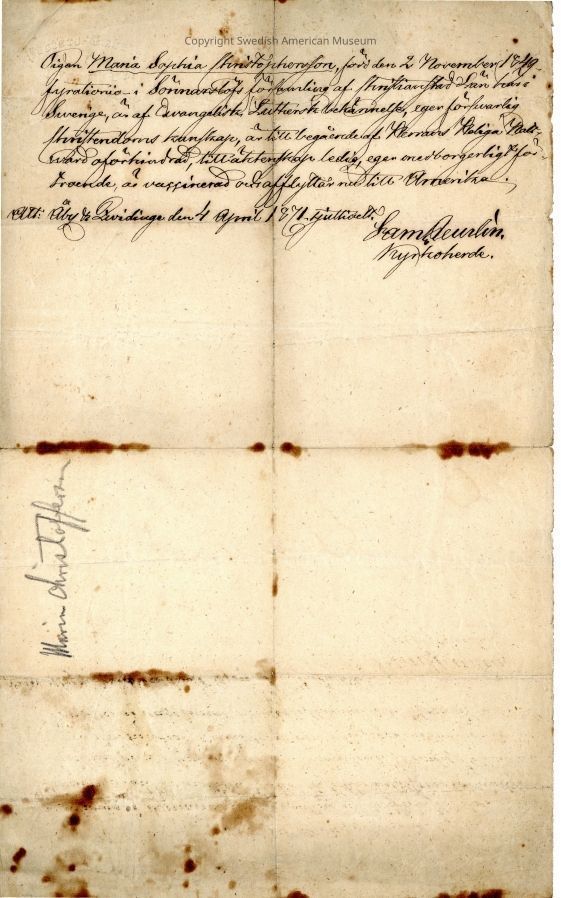 Copyright Swedish American Museum
Pigan Maria Sophia Christophersson, född den 2 November 1849
fyrationio i Sönnarslöfs församling af Christianstad Län här i
Sverige, är af Evangelisk Luthersk bekännelse, eger försvarlig
Christendoms kunskap, är till begående af Herrans Heliga Natt-
ward oförhindrad, till äktenskap ledig, eger medborgerligt för-
troende, är vaccinerad och afflyttar nu till Amerika.
Att: Åby & Qvidinge den 4 April 1871
Kyrkoherde.
Maria Christofferson